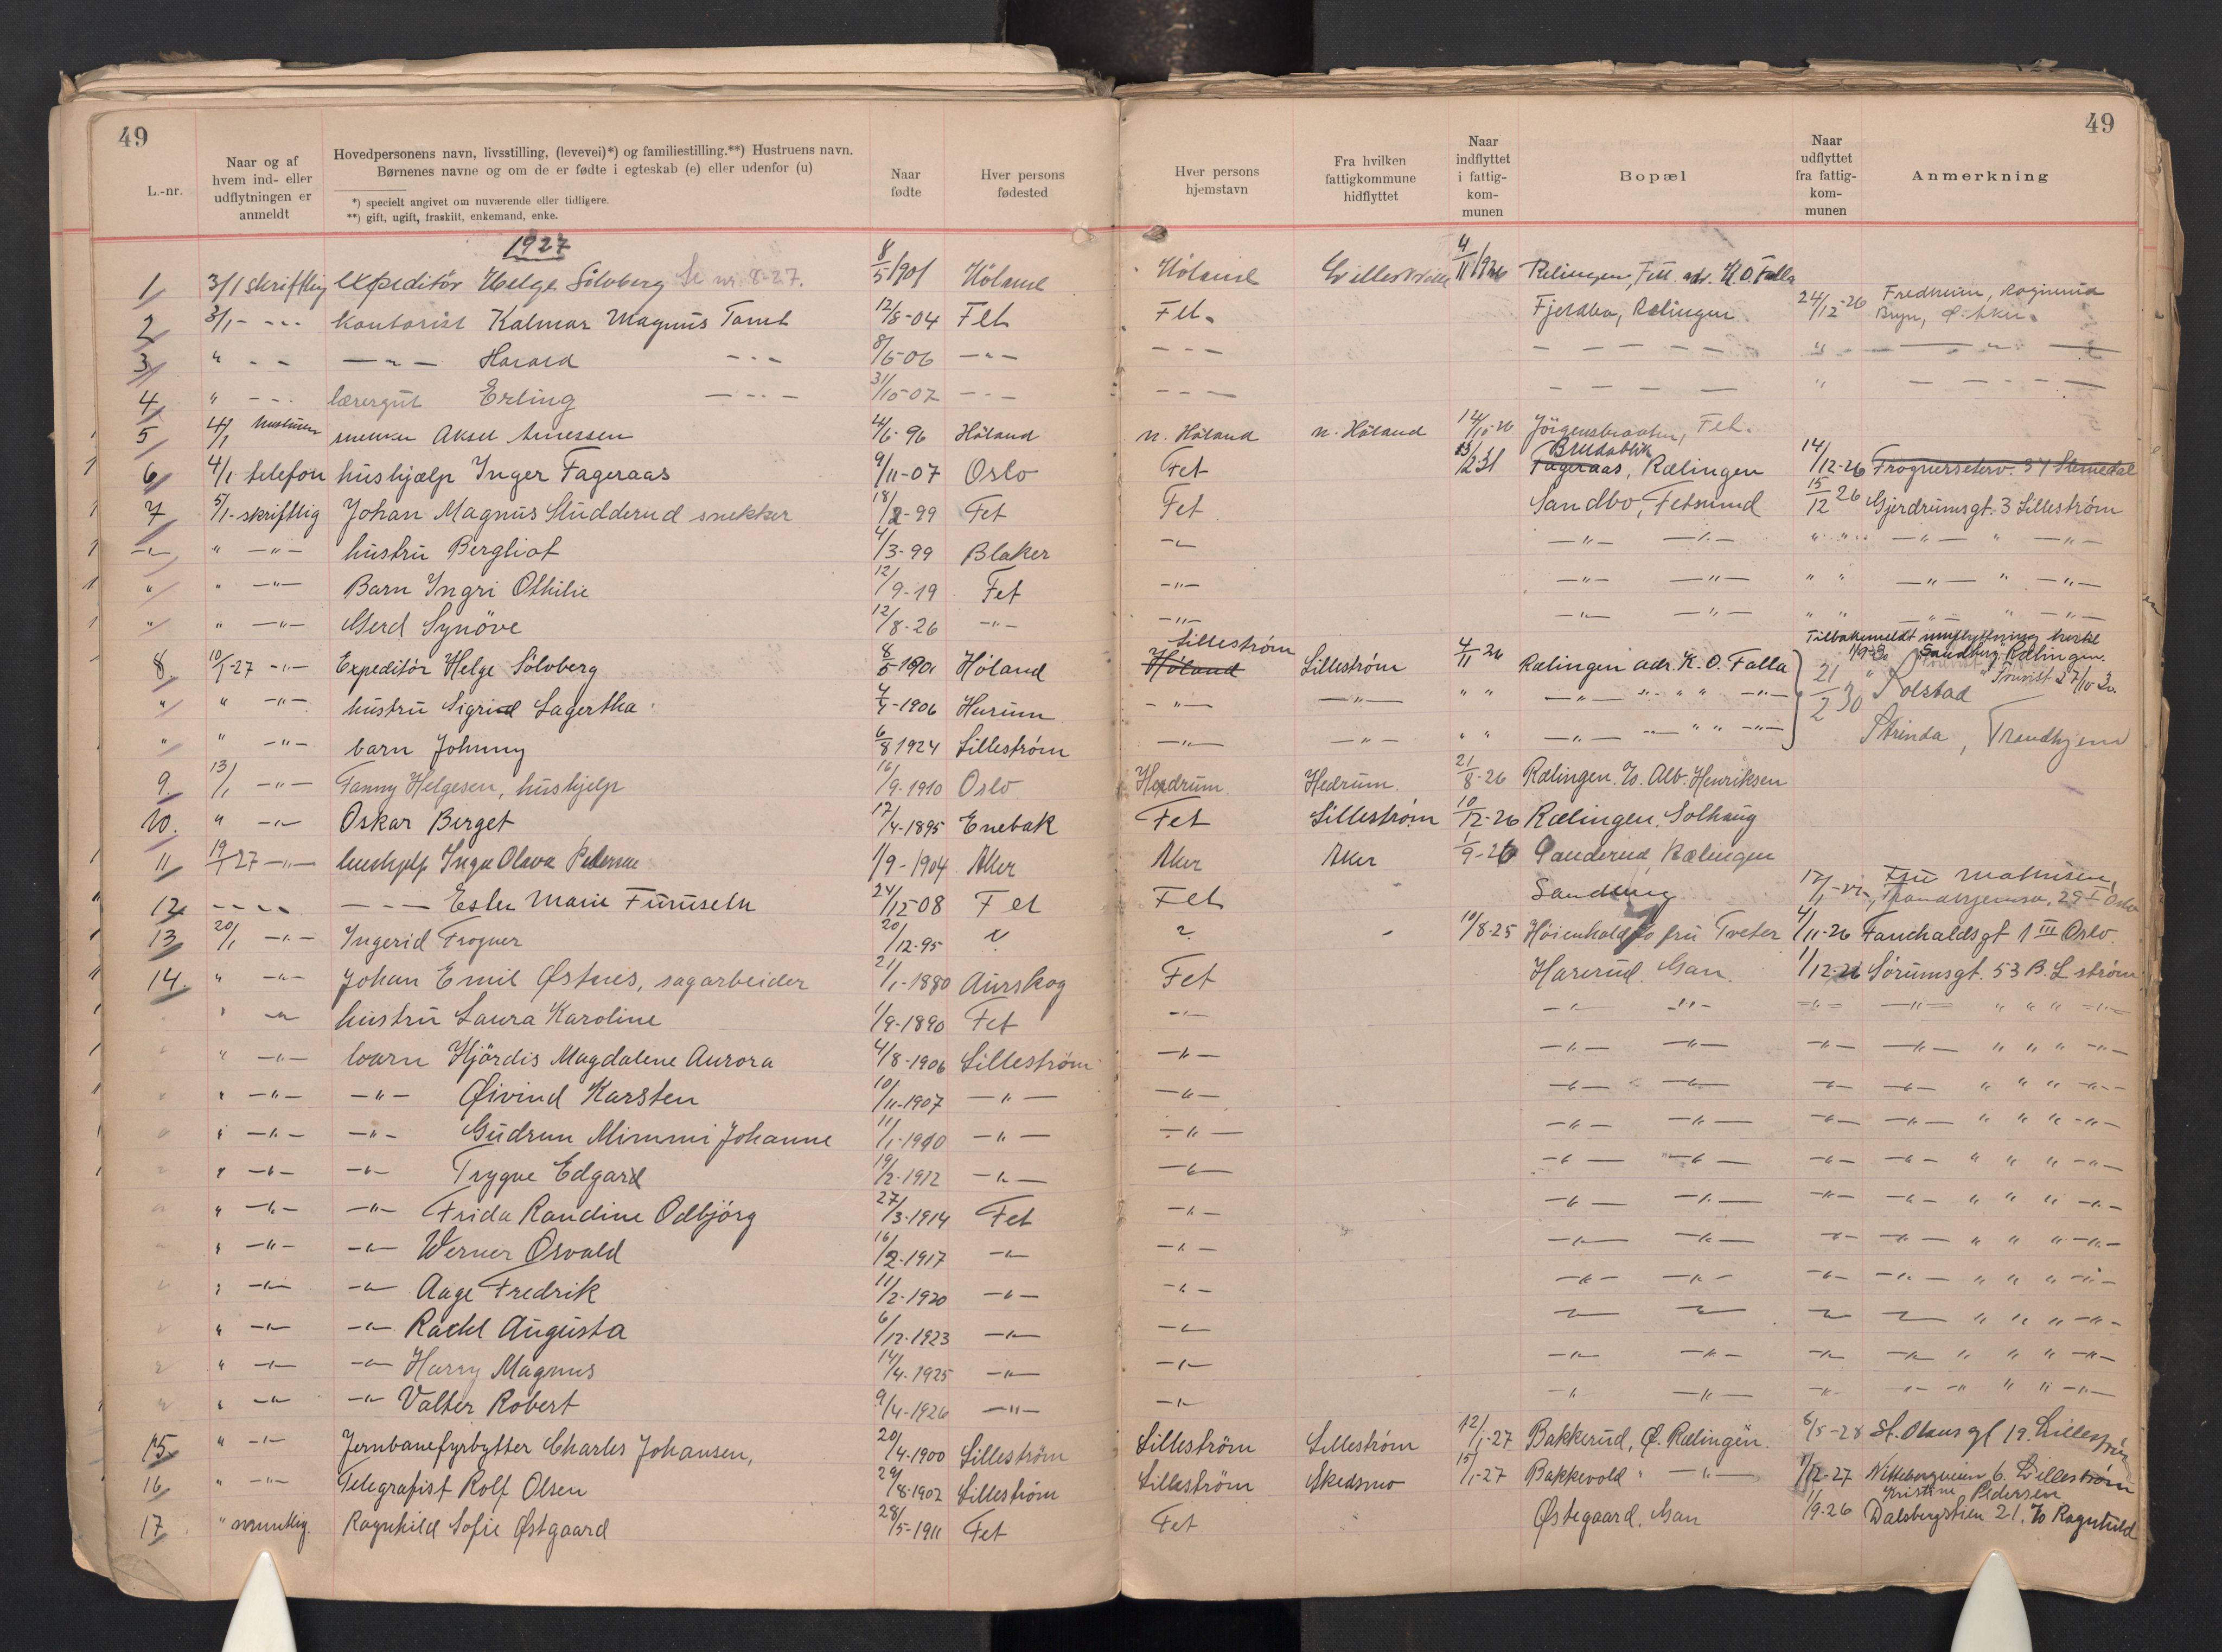 49
49
L.-nr.
Naar og af hvem ind- eller udflytningen er anmeldt
Hovedpersonens navn, livsstilling, (levevei)*) og familiestilling.**) Hustruens navn.
Børnenes navne og om de er fødte i egteskab (e) eller udenfor (u)
*) specielt angivet om nuværende eller tidligere.
**) gift, ugift, fraskilt, enkemand, enke.
Naar fødte
Hver persons fødested
Hver persons hjemstavn
Fra hvilken fattigkommune hidflyttet
Naar indflyttet i fattig-kom-munen
Bopæl
Naar udflyttet fra fattig-kom-munen
Anmerkning
1927
1 3/1 skriftlig expeditör Helge Sölvberg Se nr. 8-27. 8/5 1901 Höland Höland 4/11 1926 Relingen, Fet adr. K.O. Falla
2 3/1 - -- kontorist Kalmar Magnus Tomt 12/8-04 Fet Fet. Fjeldbo, Rælingen 24/12-26 Fredheim, Bryn, Ø. Aker.
3 " - - - " - Harald - - - 8/6-06 - " - - - - - - - - - " - " -
4 " - - - lærergut Erling - - - 31/10-07 - - - - - - - - - - " - - - -
5 4/1 snekker Aksel 4/6-96 Höland n. Höland n. Höland 14/10-26 Fet.
6 4/1 telefon hushjælp Inger Fageraas 9/11-07 Oslo Fet 23/12 31 Fageraas, Brudablik Rælingen 14/12-26 Frognerseterv. 34
7 5/1-skriftlig Johan Magnus Studderud snekker 18/2-99 Fet Fet Sandbo, Fetsund 15/12 26 Gjerdrumsgt. 3 Lilleström
- " - " - " - hustru Bergliot 4/3-99 Blaker - " - - " - - " - " " - " - " - " -
" " - " - Barn Ingri Othilie 12/9-19 Fet - " - - " - - " - " " - " - " - " -
" " - " - Gerd Synöve 12/8-26 - " - - " - - " - - " - " " - " - " - " -
8 10/1-27 - " - Expeditör Helge Sölvberg 8/5-1901 Höland Höland Lilleström Lilleström 4/11 26 Rælingen adr. K. O. Falla Tilbakemeldt 1/9-30 Sandberg Rælingen.
" " - " - hustru Sigrid Lagertha 7/1-1906 Hurum - " - - " - " " - " - " " " - " - 21/2 30 Solstad
" " - " - barn Johnny 6/8 1924 Lilleström - " - - " - " " - " - " " " - " - Strinda, Trondhjem
9. 13/1 - " - Fanny Helgesen, hushjelp 16/9-1910 Oslo Hedrum. Hedrum. 21/8-26 Rælingen. c/o. Alb. Henriksen
10. " - " - Oskar Berget 17/4-1895 Enebak Fet Lilleström 10/12-26 Rælingen. Solhaug
11 19/1 27 - " - hushjelp Inga Olava Pedersen 1/9-1904 Aker Aker Aker 1/9-26 Rælingen
12 - - - - - - - Ester Marie Furuseth 24/12-08 Fet Fet 17/1 Fru Mathisen, 29 I Oslo
13 20/1 - " - Ingerid Frogner 20/12-95 ? ? - 10/8-25 c/o fru Tveter 4/11-26 Fauchaldsgt 1 III Oslo.
14. " - " - Johan Emil Østnes, sagarbeider 21/1-1880 Aurskog Fet Harerud. Gan. 1/12-26 Sörumsgt. 53 B. L ström
" - " - hustru Laura Karoline 1/9-1890 Fet - " - - " - - " - - " - - " - " " " - " -
" " - " - barn Hjördis Magdalene Aurora 4/8-1906 Lilleström - " - - " - - " - - " - - " - " " " - " -
" " - " - - " - Øivind Karsten 10/11-1907 - " - - " - - " - - " - - " - - " - " " " - " -
" " - " - - " - Gudrun Mimmi Johanne 11/1-1910 - " - - " - - " - - " - - " - - " - " " " - " -
" " - " - - " - Trygve Edgard 19/2-1912 - " - - " - - " - - " - - " - - " - " " " - " -
" " - " - - " - Frida Randine Odbjörg 27/3-1914 Fet - " - - " - - " - - " - - " - " " " - " -
" " - " - - " - Werner Osvald 16/2-1917 - " - - " - - " - - " - - " - - " - " " " - " -
" " - " - - " - Aage Fredrik 11/2-1920 - " - - " - - " - - " - - " - - " - " " " - " -
" " - " - - " - Rachl Augusta 6/12-1923 - " - - " - - " - - " - - " - - " - " " " - " -
" " - " - - " - Harry Magnus 14/4-1925 - " - - " - - " - - " - - " - - " - " " " - " -
" " - " - - " - Valter Robert 9/4-1926 - " - - " - - " - - " - - " - - " - " " " - " -
15 " - " - Jernbanefyrbytter Charles Johansen, 20/4-1900 Lilleström Lilleström Lilleström 12/1-27 Bakkerud, Ø. Rælingen. 8/5-28 St. Olavs gt 19. Lilleström
16 " - " - Telegrafist Rolf Olsen 29/8-1902 Lilleström Lilleström Skedsmo 15/1-27 Bakkevold " - " - 1/12-27 6. Lilleström
17 " muntlig. Ragnhild Sofie Østgaard 28/5-1911 Fet Fet Østegaard. Gan 1/9-26 Dalsbergstien 21. c/o Ragnhild Kristine Pedersen